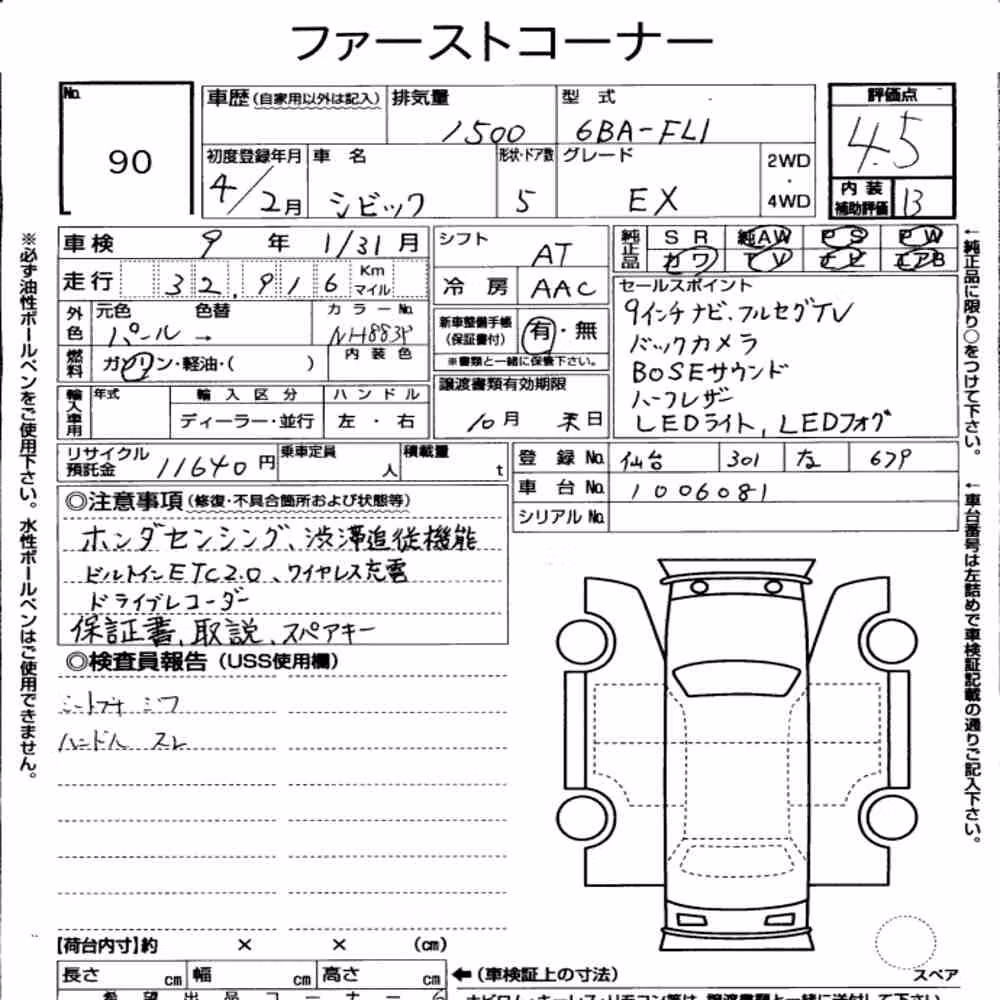 ファーストコーナー
No. 90
車歴(自家用以外は記入) 排気量 1500 型式 6BA-FL1
評価点 4.5
初度登録年月 4/2月 車名 シビック 形状・ドア数 5 グレード EX 2WD・4WD
内装補助評価 B
車検 9年 1/31月 シフト AT
純正品 SR 純AW PS PW
カワ TV ナビ エアB
走行 32,916 Km マイル
冷房 AAC
外色 元色 パール 色替 → カラーNo. NH883P
内装色
燃料 ガソリン・軽油・( )
新車整備手帳(保証書付) 有・無
※書類と一緒に保管下さい。
輸入車用 年式 輸入区分 ディーラー・並行 ハンドル 左・右
譲渡書類有効期限
10月 末日
セールスポイント
9インチナビ、フルセグTV
バックカメラ
BOSEサウンド
ハーフレザー
LEDライト, LEDフォグ
リサイクル預託金 11640円 乗車定員 人 積載量 t
登録No. 仙台 301 679
車台No. 1006081
シリアルNo.
◎注意事項(修復・不具合箇所および状態等)
ホンダセンシング、渋滞追従機能
ビルトインETC2.0、ワイヤレス充電
ドライブレコーダー
保証書、取説、スペアキー
◎検査員報告(USS使用欄)
ハンドル スレ
【荷台内寸】約 × × (cm)
長さ cm 幅 cm 高さ cm
←(車検証上の寸法)
スペア
希望出品コーナー
ナビロム・キーレス・リモコン等は、譲渡書類と一緒に送付して下さい
※必ず油性ボールペンをご使用下さい。水性ボールペンはご使用できません。
←純正品に限り○をつけて下さい。
←車台番号は左詰めで車検証記載の通りご記入下さい。